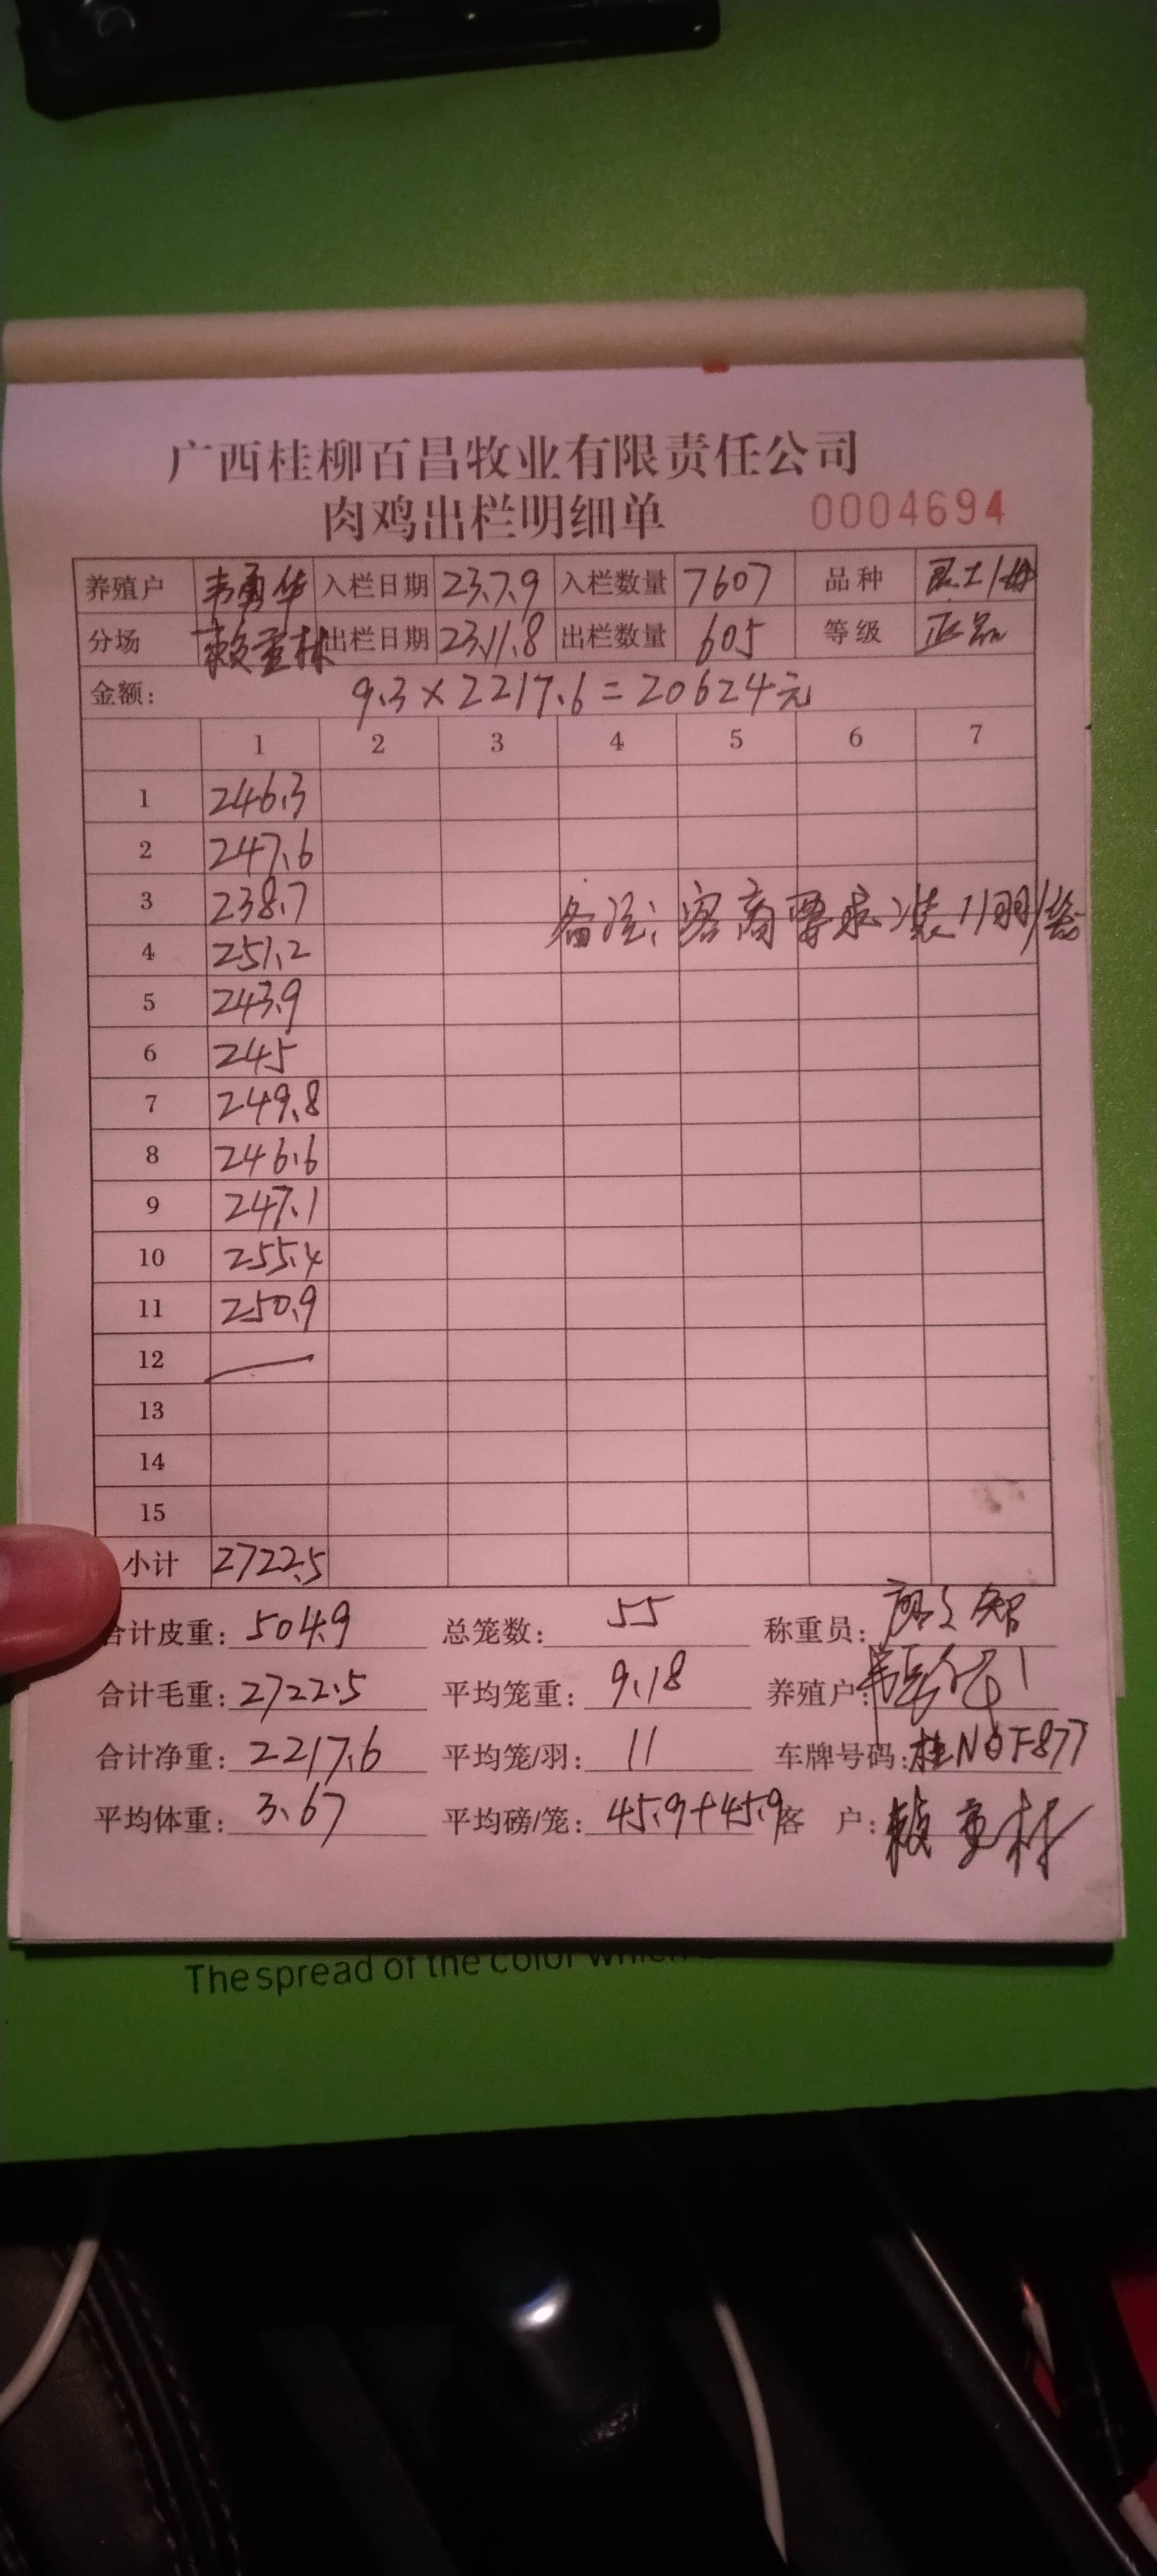 广西桂柳百昌牧业有限责任公司
肉鸡出栏明细单 0004694
养殖户 韦勇华 入栏日期 23.7.9 入栏数量 7607 品种
分场 赖重林 出栏日期 23.11.8 出栏数量 605 等级 正品
金额: 9.3×2217.6=20624元
1 2 3 4 5 6 7
1 246.3
2 247.6
3 238.7
备注: 客商要求装11羽/笼
4 251.2
5 243.9
6 245
7 249.8
8 246.6
9 247.1
10 255.4
11 250.9
12
13
14
15
小计 2722.5
合计皮重: 504.9 总笼数: 55 称重员:
合计毛重: 2722.5 平均笼重: 9.18 养殖户:
合计净重: 2217.6 平均笼/羽: 11 车牌号码: 桂N0F877
平均体重: 3.67 平均磅/笼: 45.9+45.9 客 户: 赖重林
The spread of the color